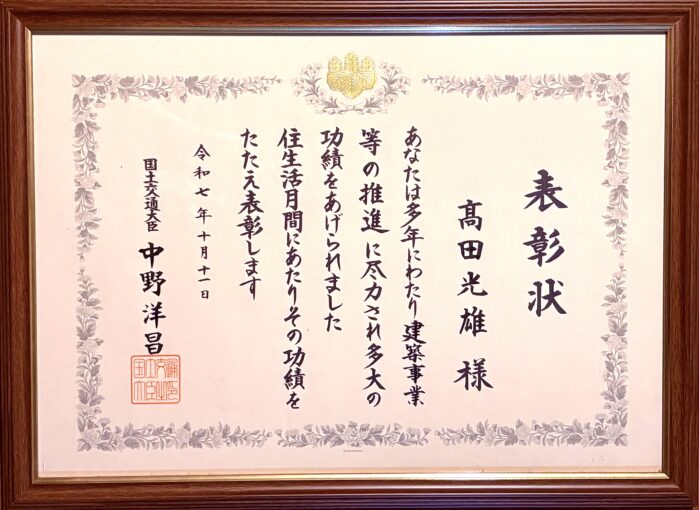 表彰状
髙田光雄 様
あなたは多年にわたり建築事業
等の推進に尽力され多大の
功績をあげられました
住生活月間にあたりその功績を
たたえ表彰します
令和七年十月十一日
国土交通大臣 中野洋昌
国土交通大臣之印